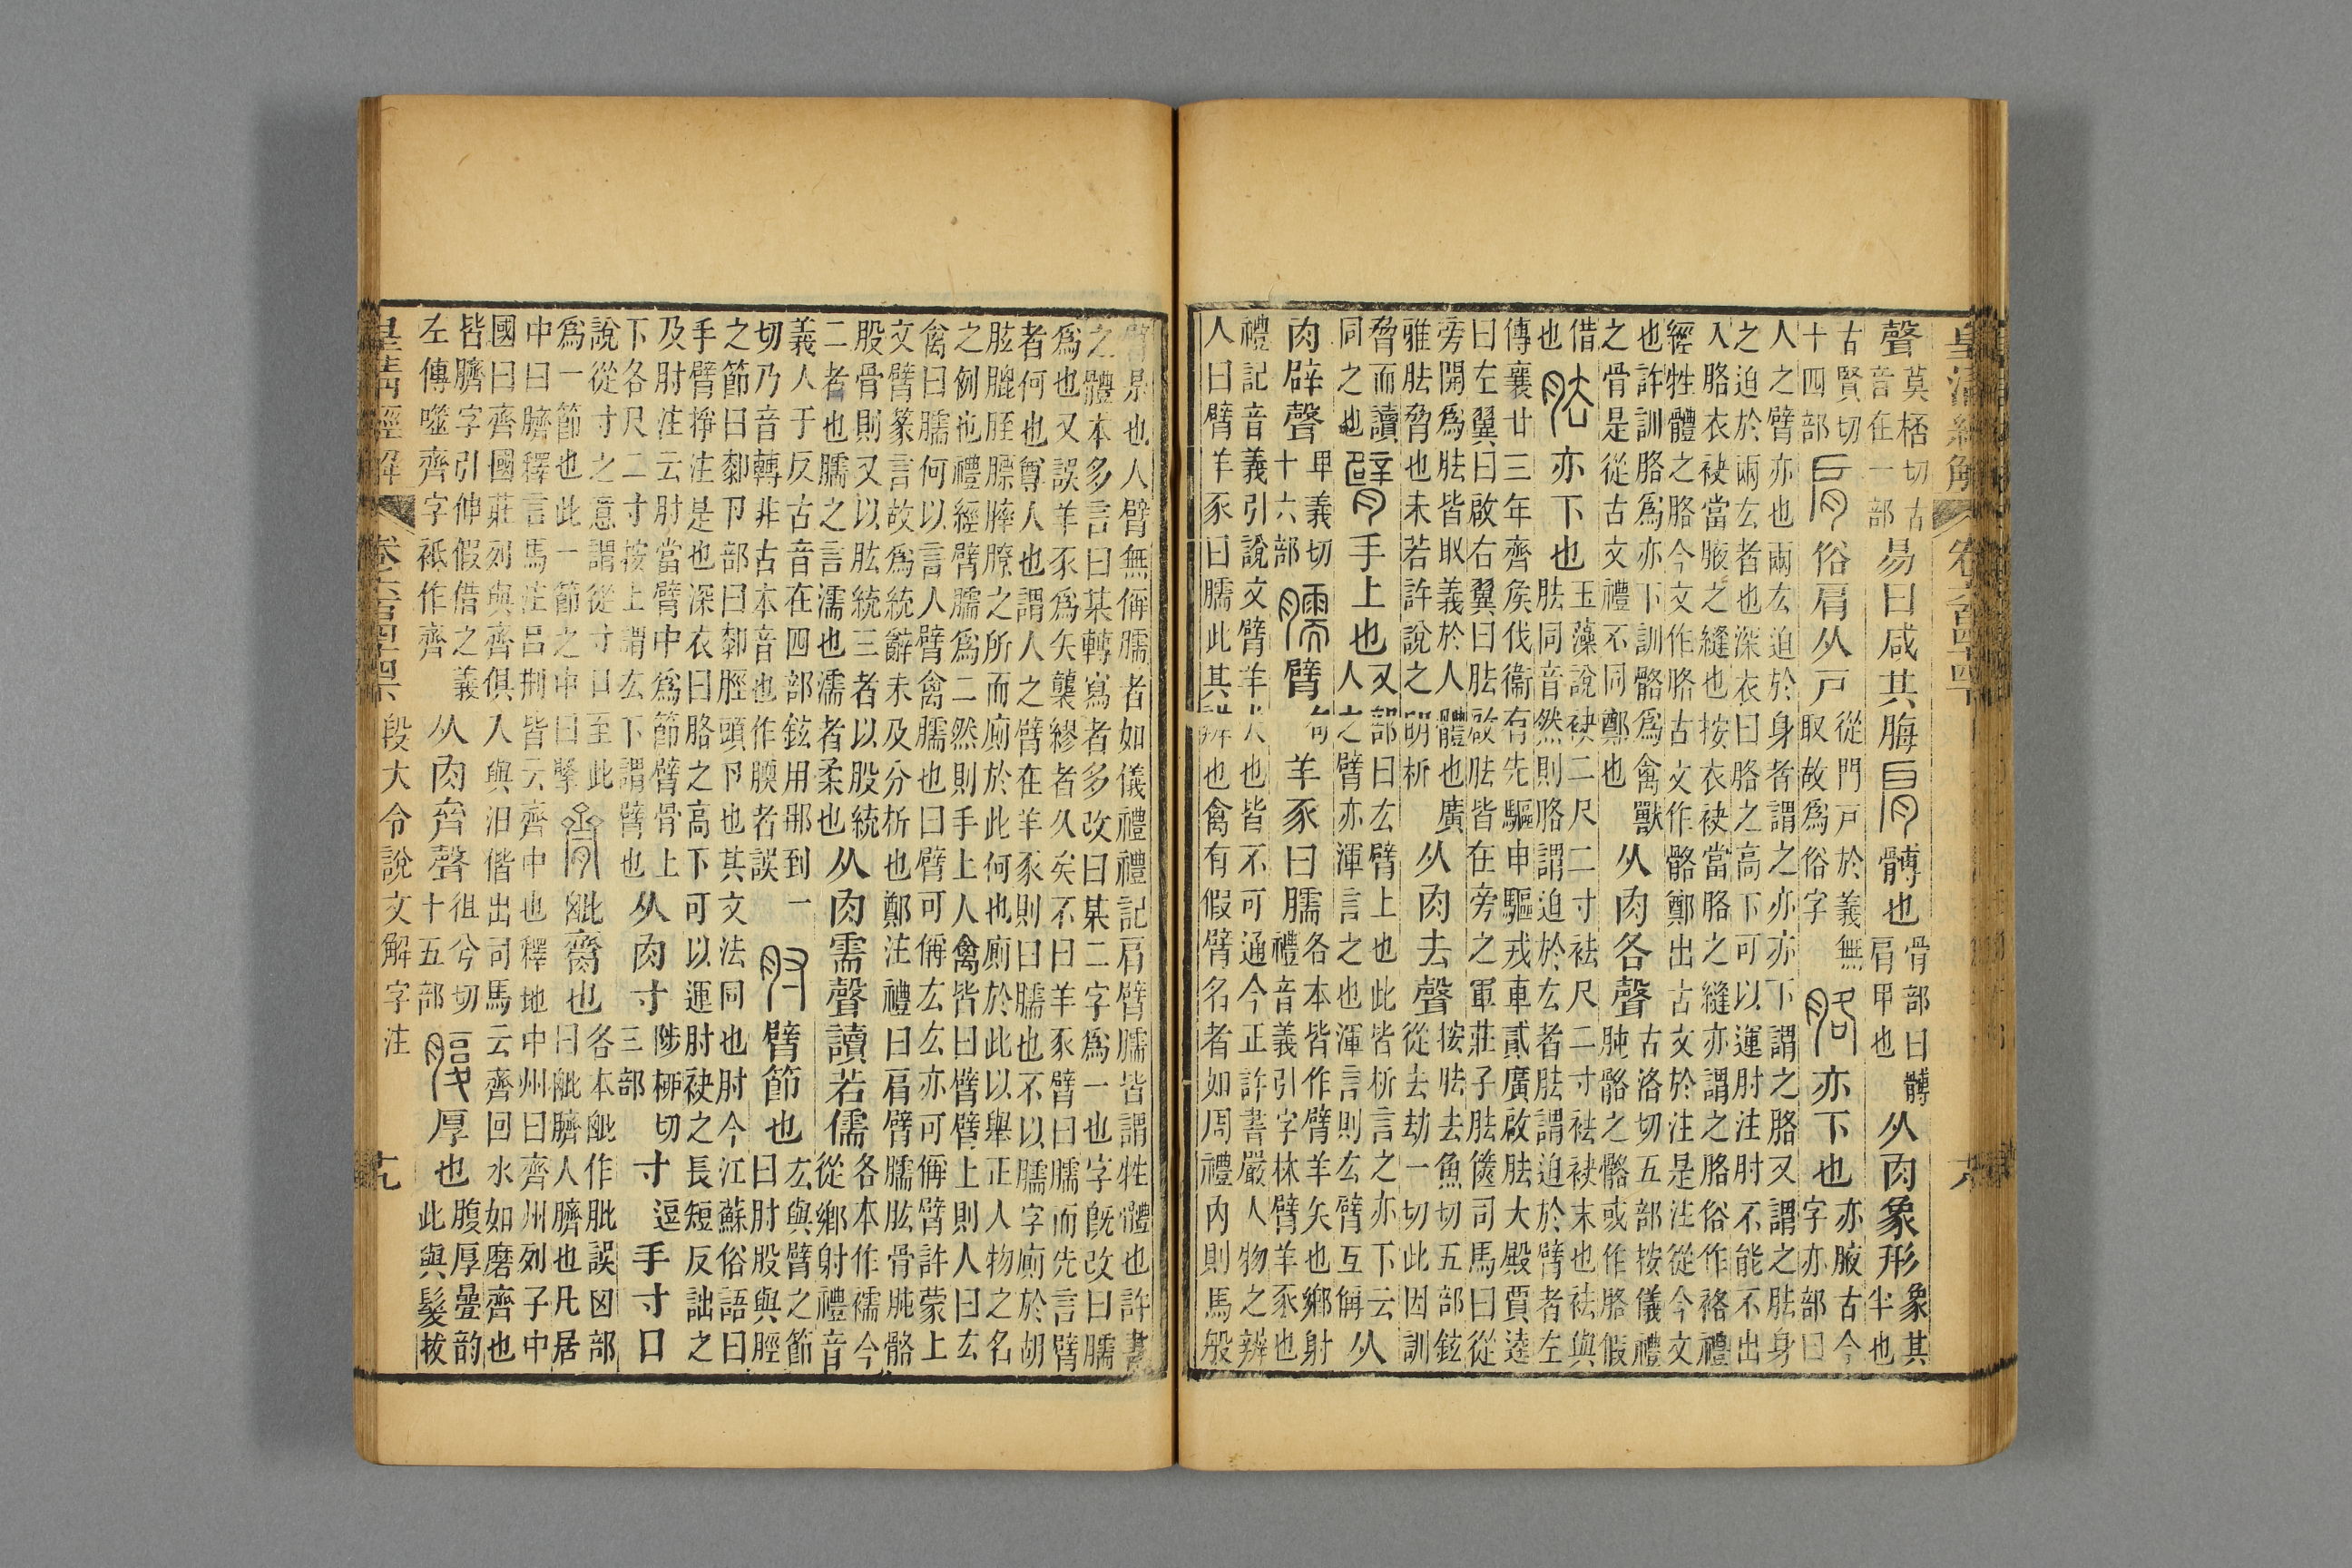 皇清經解 卷六百四十四下
聲
莫桮切古
音在一部
易曰咸其脢
肩
髆也
骨部曰髆
肩甲也
从肉象形
象其
半也
古賢切
十四部
肩
俗肩从戶
從門戶於義無
取故爲俗字
胳
亦下也
亦腋古今
字亦部曰
人之臂亦也兩厷迫於身者謂之亦亦下謂之胳又謂之胠身
之迫於兩厷者也深衣曰胳之高下可以運肘注肘不能不出
入胳衣袂當腋之縫也按衣袂當胳之縫亦謂之胳俗作袼禮
經牲體之胳今文作胳古文作骼鄭出古文於注是注從今文
也許訓胳爲亦下訓骼爲禽獸
之骨是從古文禮不同鄭也
从肉各聲
古洛切五部按儀禮
肫骼之骼或作胳假
借
也
胠
亦下也
玉藻說袂二尺二寸袪尺二寸袪袂末也袪與
胠同音然則胳謂迫於厷者胠謂迫於臂者左
傳襄廿三年齊矦伐衞有先驅申驅戎車貳廣啟胠大殿賈逵
曰左翼曰啟右翼曰胠啟胠皆在旁之軍莊子胠篋司馬曰從
旁開爲胠皆取義於人體也廣
雅胠脅也未若許說之明析
从肉去聲
按胠去魚切五部鉉
從去劫一切此因訓
脅而讀
同之也
臂
手上也
又部曰厷臂上也此皆析言之亦下云
人之臂亦渾言之也渾言則厷臂互偁
从
肉辟聲
卑義切
十六部
臑
臂
羊豕曰臑
各本皆作臂羊矢也鄉射
禮音義引字林臂羊豕也
禮記音義引說文臂羊犬也皆不可通今正許書嚴人物之辨
人曰臂羊豕曰臑此其辨也禽有假臂名者如周禮內則馬般
臂是也人臂無偁臑者如儀禮禮記肩臂臑皆謂牲體也許書
之體本多言曰某轉寫者多改曰某二字爲一也字旣改曰臑
爲也又誤羊豕爲矢襲繆者久矣不曰羊豕臂曰臑而先言臂
者何也尊人也謂人之臂在羊豕則曰臑也不以臑字廁於胡
胘膍胵膘膟膫之所而廁於此何也廁於此以舉正人物之名
之例也禮經臂臑爲二然則手上人禽皆曰臂臂上則人曰厷
禽曰臑何以言人臂禽臑也曰臂可偁厷厷亦可偁臂許蒙上
文臂篆言故爲統辭未及分析也鄭注禮曰肩臂臑肱骨肫骼
股骨則又以肱統三者以股統
二者也臑之言濡也濡者柔也
从肉需聲讀若儒
各本作襦今
從鄉射禮音
義人于反古音在四部鉉用那到
切乃音轉非古本音也作腝者誤
肘
臂節也
厷與臂之節
曰肘股與脛
之節曰厀卪部曰厀脛頭卪也其文法同也肘今江蘇俗語曰
手臂掙注是也深衣曰胳之高下可以運肘袂之長短反詘之
及肘注云肘當臂中爲節臂骨上
下各尺二寸按上謂厷下謂臂也
从肉寸
陟柳切
三部
寸
逗
手寸口
說從寸之意謂從寸口至此
爲一節也此一節之中曰擧
毗
齎也
各本毗作肶誤囟部
曰毗臍人臍也凡居
中曰臍釋言馬注呂荆皆云齊中也釋地中州曰齊州列子中
國曰齊國莊列與齊俱入與汩偕出司馬云齊回水如磨齊也
皆臍字引伸假借之義
左傳噬齊字衹作齊
从肉齊聲
徂兮切
十五部
腹
厚也
腹厚曡韵
此與髮拔
皇清經解 卷六百四十四下 段大令說文解字注 十九